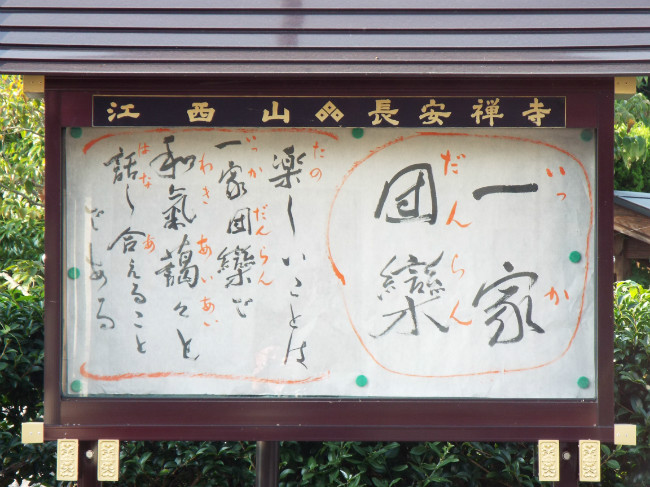 江西山 長安禅寺
一家
いっか
団欒
だんらん
楽しいことは
たの
一家団欒で
いっか だんらん
和氣藹々と
わき あいあい
話し合えること
はな あ
である